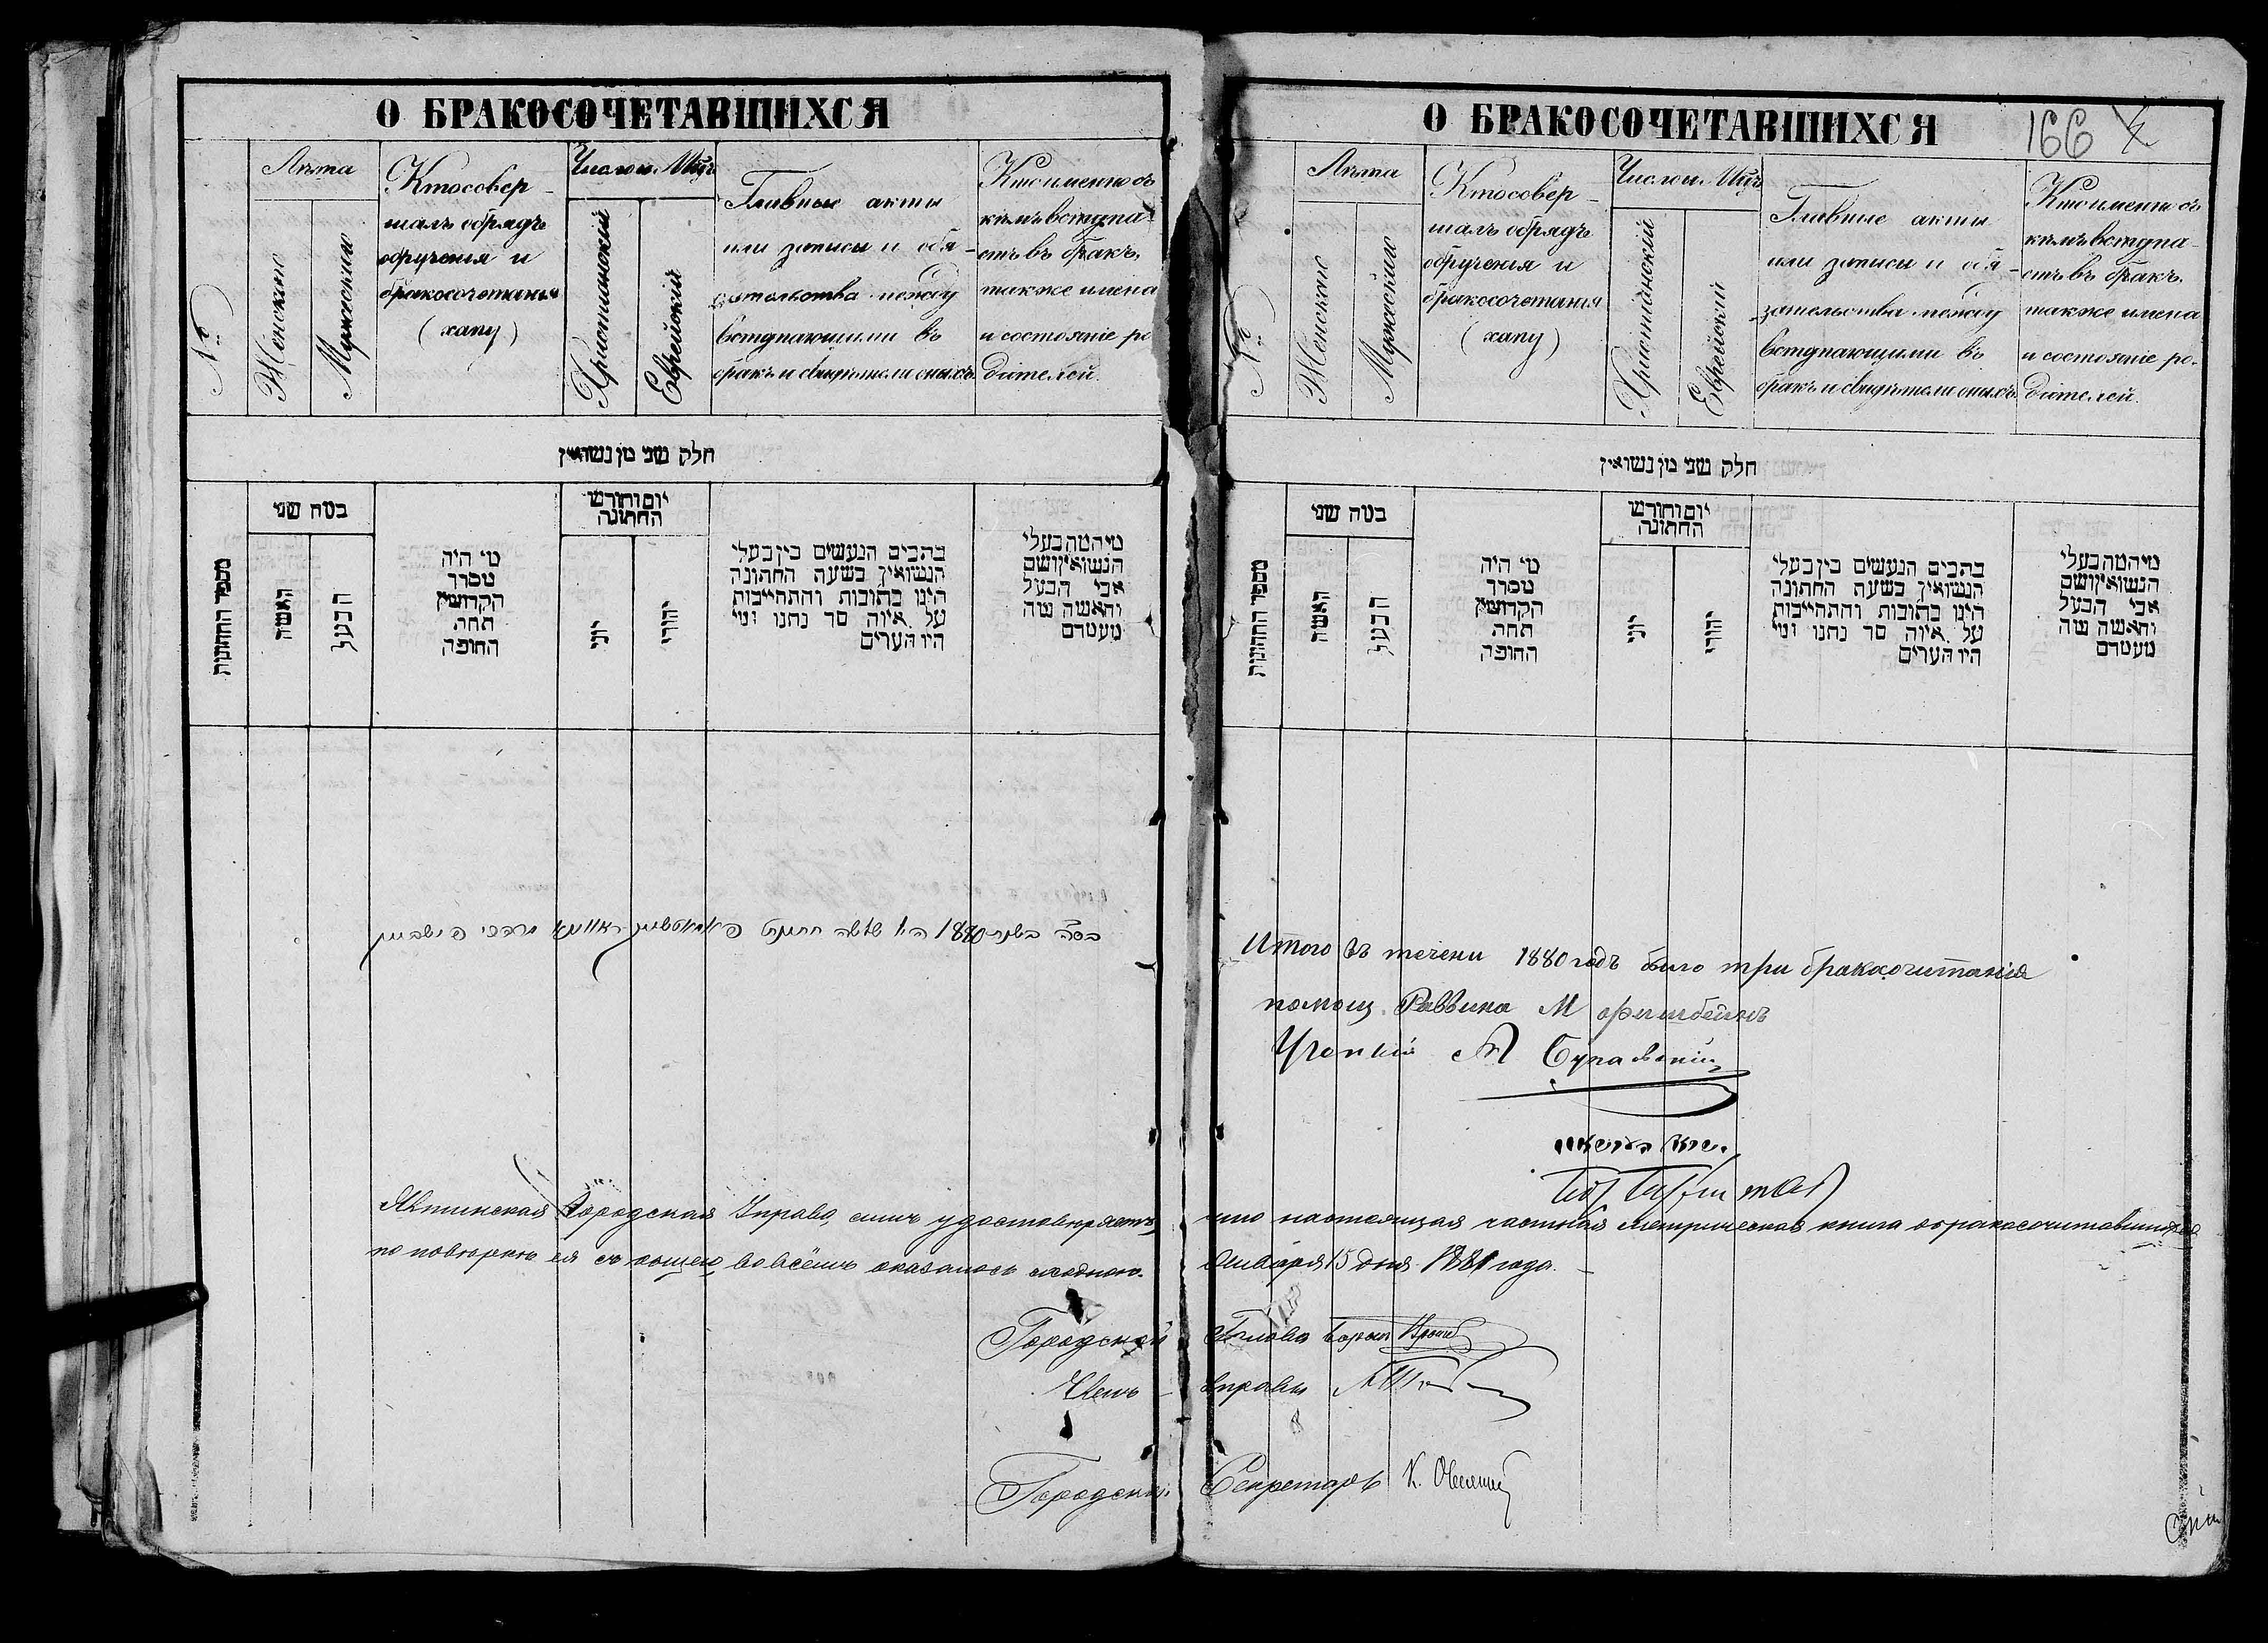 О БРАКОСОЧЕТАВШИХСЯ
№
Лѣта
Женскаго
Мужескаго
Кто совер-
шалъ обрядъ
обрученія и
бракосочетанія
(хапу)
Число и Мцъ
Христіанскій
Еврейскій
Главные акты
или записи и обя-
зательства между
вступающими въ
бракъ и свидѣтели оныхъ
Кто именно съ
кѣмъ вступа-
етъ въ бракъ,
также имена
и состояніе ро-
дителей.
חלק שני מן נשואין
מספר החתונות
כמה שני
האשה
הבעל
מי היה
מסדר
הקדושין
תחת
החופה
יום וחודש
החתונה
יוני
יהודי
כתבים הנעשים בין בעלי
הנשואין בשעת החתונה
היינו כתובות והתחייבות
על איזה סך נתנו ומי
היו העדים
מיהמה בעלי
הנשואין ושם
אבי הבעל
והאשה ומה
מעמדם
בשנת 1880 היו שלשה
О БРАКОСОЧЕТАВШИХСЯ
166
№
Лѣта
Женскаго
Мужескаго
Кто совер-
шалъ обрядъ
обрученія и
бракосочетанія
(хапу)
Число и Мцъ
Христіанскій
Еврейскій
Главные акты
или записи и обя-
зательства между
вступающими въ
бракъ и свидѣтели оныхъ
Кто именно съ
кѣмъ вступа-
етъ въ бракъ.
также имена
и состояніе ро-
дителей.
חלק שני מן נשואין
מספר החתונות
כמה שני
האשה
הבעל
מי היה
מסדר
הקדושין
תחת
החופה
יום וחודש
החתונה
יוני
יהודי
כתבים הנעשים בין בעלי
הנשואין בשעת החתונה
היינו כתובות והתחייבות
על איזה סך נתנו ומי
היו העדים
מיהמה בעלי
הנשואין ושם
אבי הבעל
והאשה ומה
מעמדם
Итого въ течени 1880 годъ было три бракасочитанія
помощ. Раввина М Фишбейнъ
М
Городская Управа, симъ удостовѣряетъ, что настоящая частная метрическая книга о бракосочитавшихся
по повѣркѣ ея съ общею во всемъ оказалось сходною. Января 15 дня 1881 года.
Городской Голова
Членъ Управы
Городской Секретарь К.